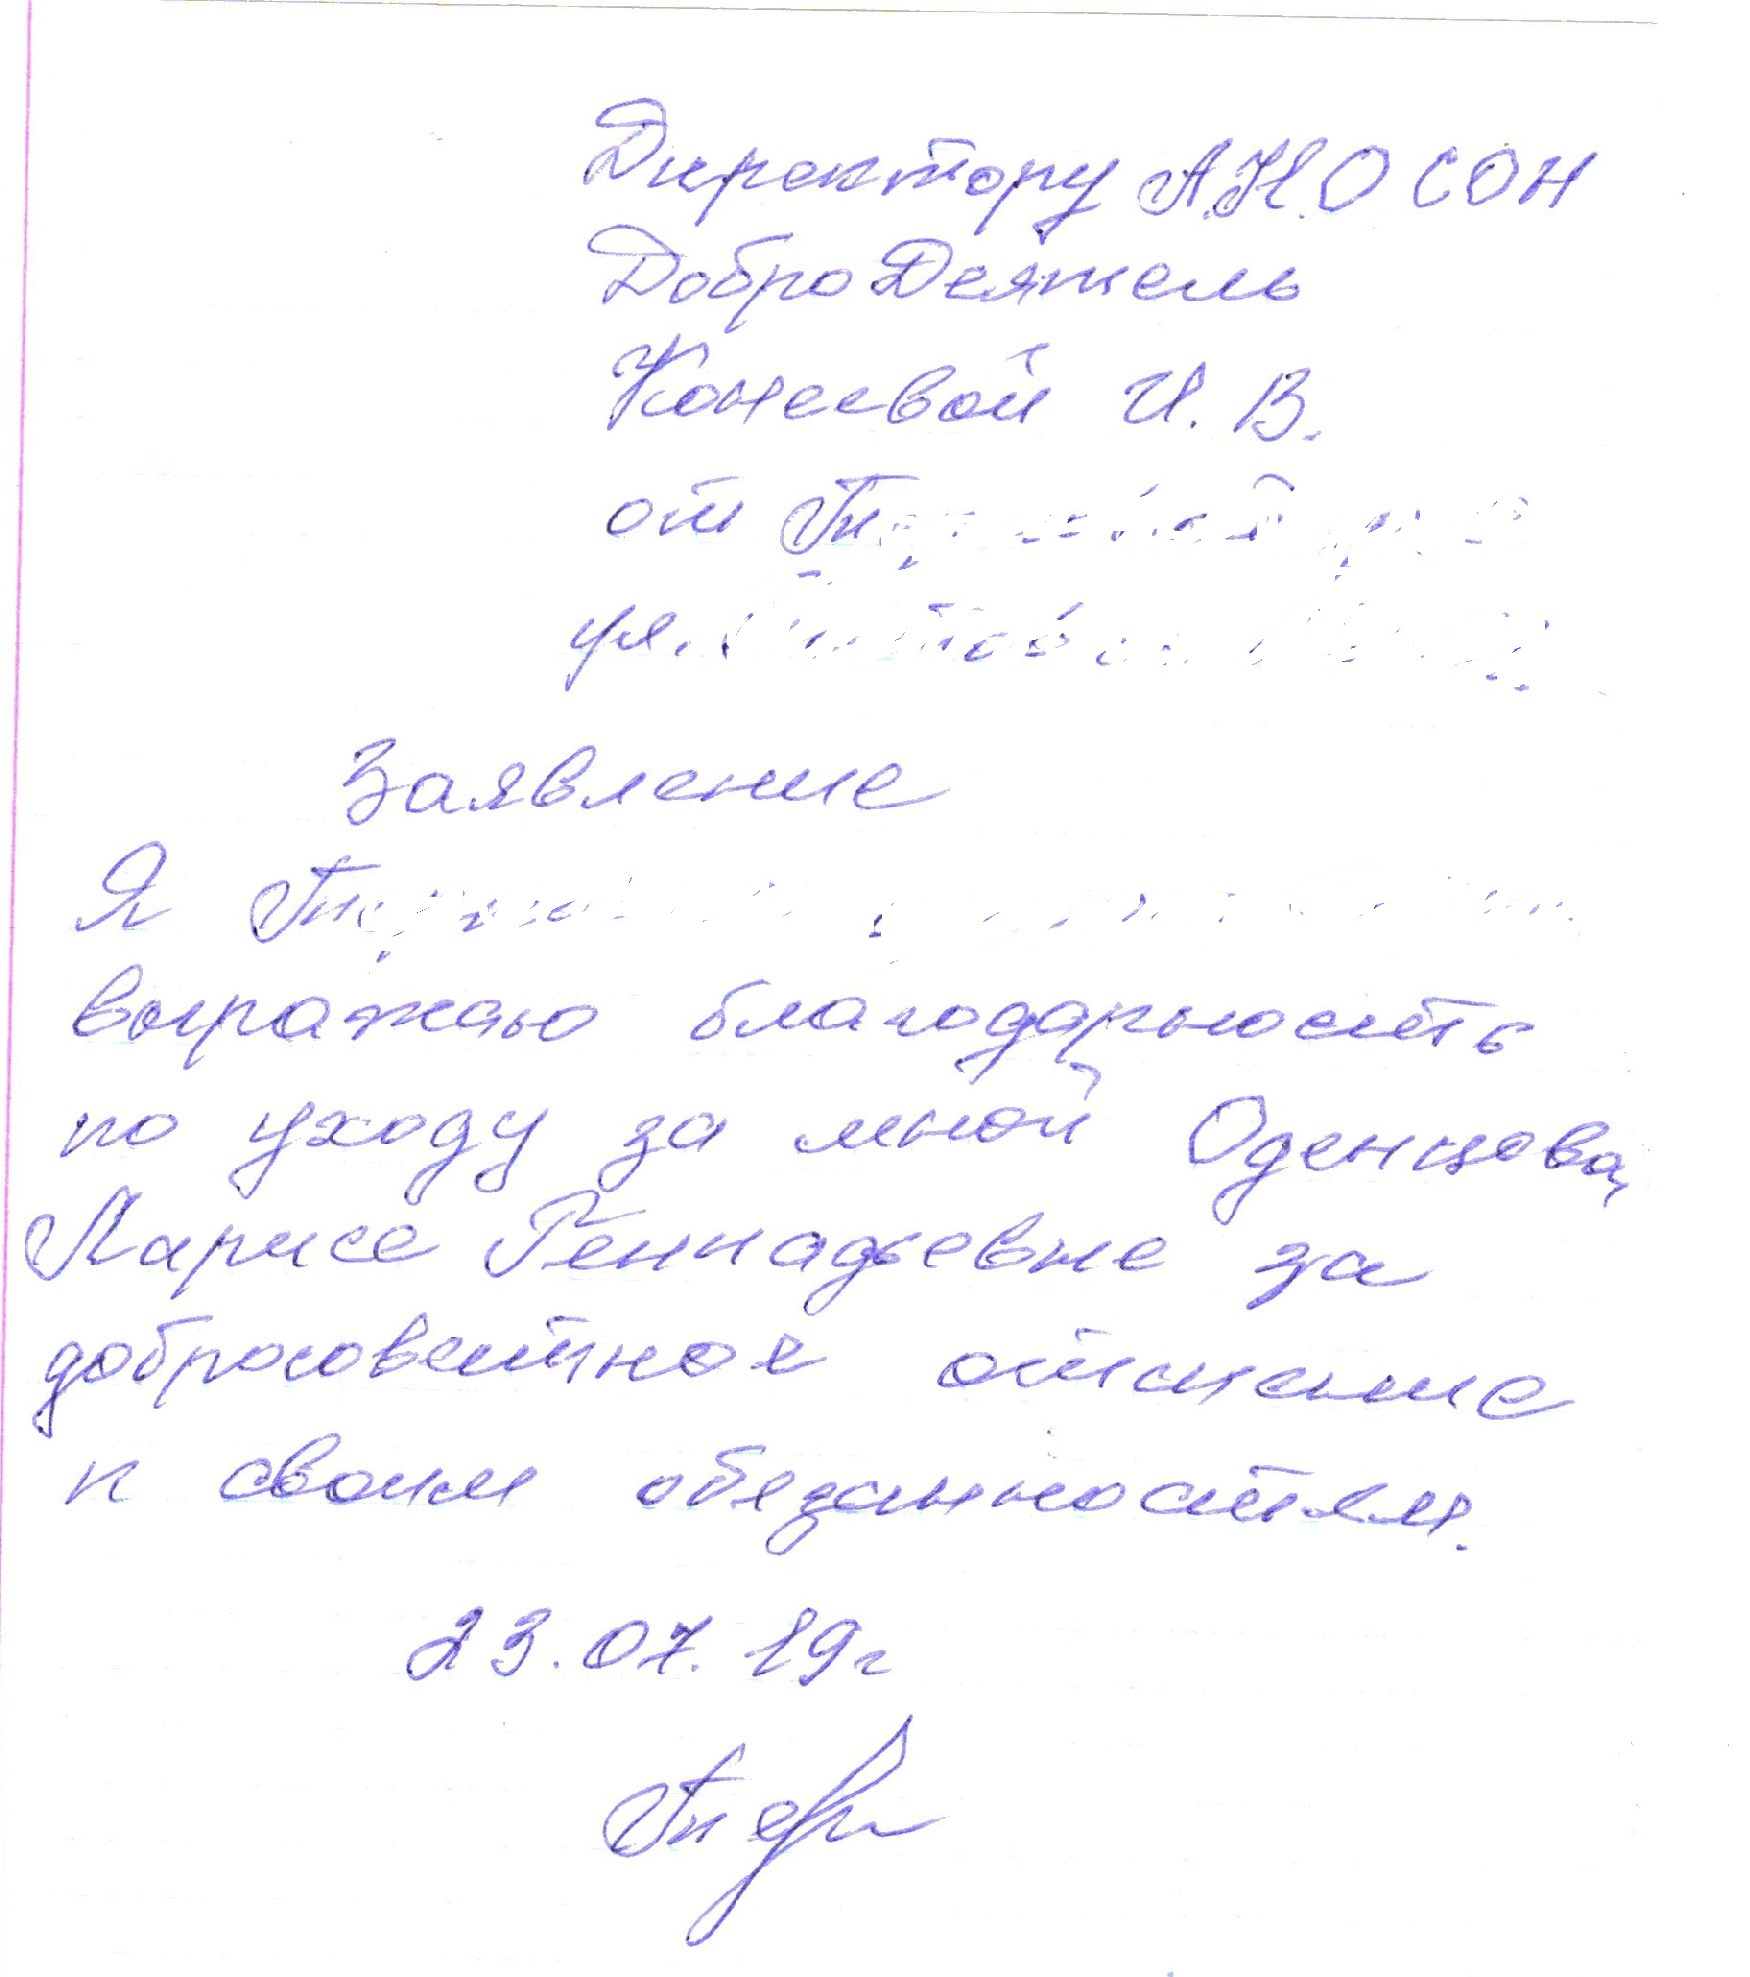 Директору А.Н.О СОН
ДоброДеятель
Конеевой И. В.
от
ул.
Заявление
Я
выражаю благодарность
по уходу за мной Оденцова
Ларисе Геннадьевне за
добросовестное отншение
к своим обязанностям.
23.07.19г